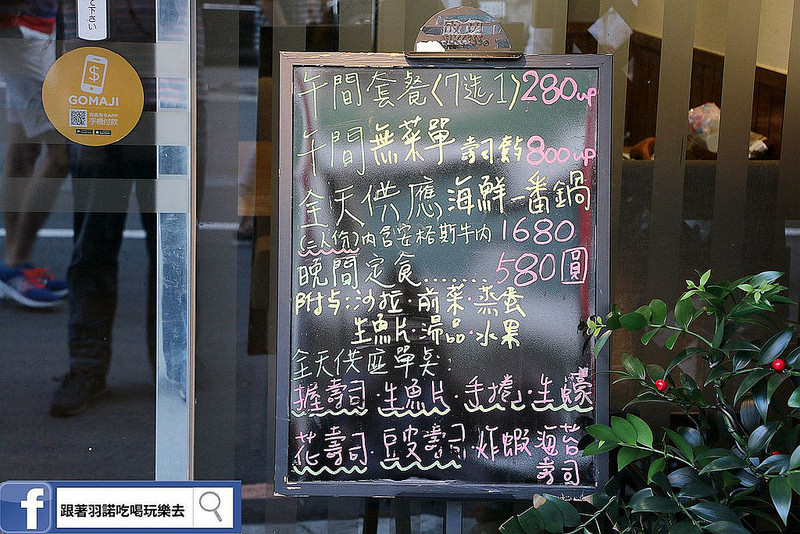 て下さい
GOMAJI
手機付款
午間套餐〈7选1〉280up
午間無菜單 壽司套餐800up
全天供應海鮮一番鍋
(二人份)內含安格斯牛肉 1680
晚間定食.......580圓
附与:沙拉·前菜·蒸蛋
生魚片·湯品·水果
全天供應單点:
握壽司·生魚片·手捲·生蠔
花壽司·豆皮壽司·炸蝦海苔
壽司
f 跟著羽諾吃喝玩樂去